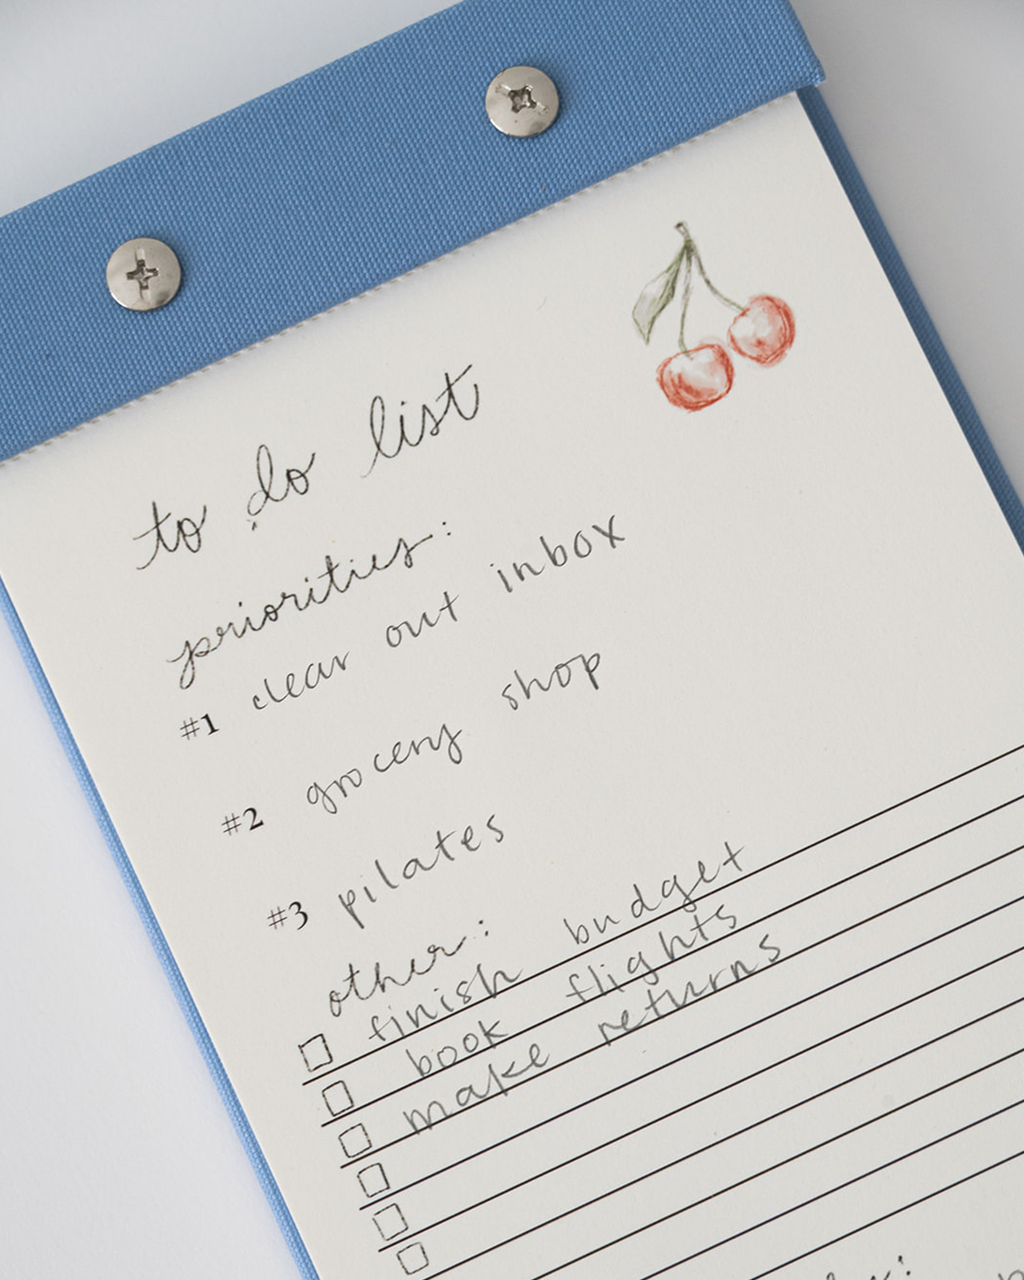 to do list
priorities:
#1 clear out inbox
#2 grocery shop
#3 pilates
other:
finish budget
book flights
make returns